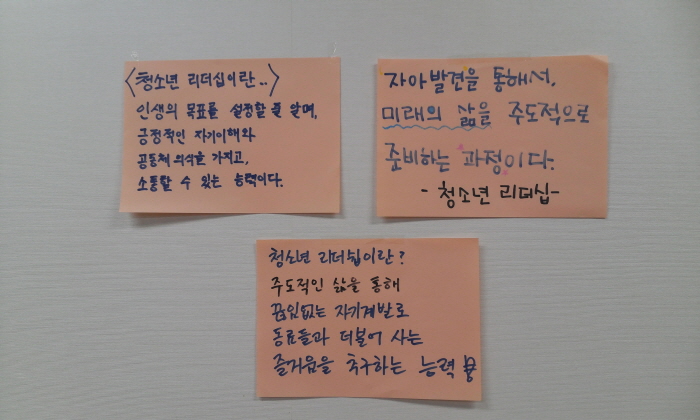 <청소년 리더십이란..>
인생의 목표를 설정할 줄 알며,
긍정적인 자기이해와
공동체 의식을 가지고,
소통할 수 있는 능력이다.
자아발견을 통해서,
미래의 삶을 주도적으로
준비하는 과정이다.
- 청소년 리더십-
청소년 리더쉽이란?
주도적인 삶을 통해
끊임없는 자기계발로
동료들과 더불어 사는
즐거움을 추구하는 능력